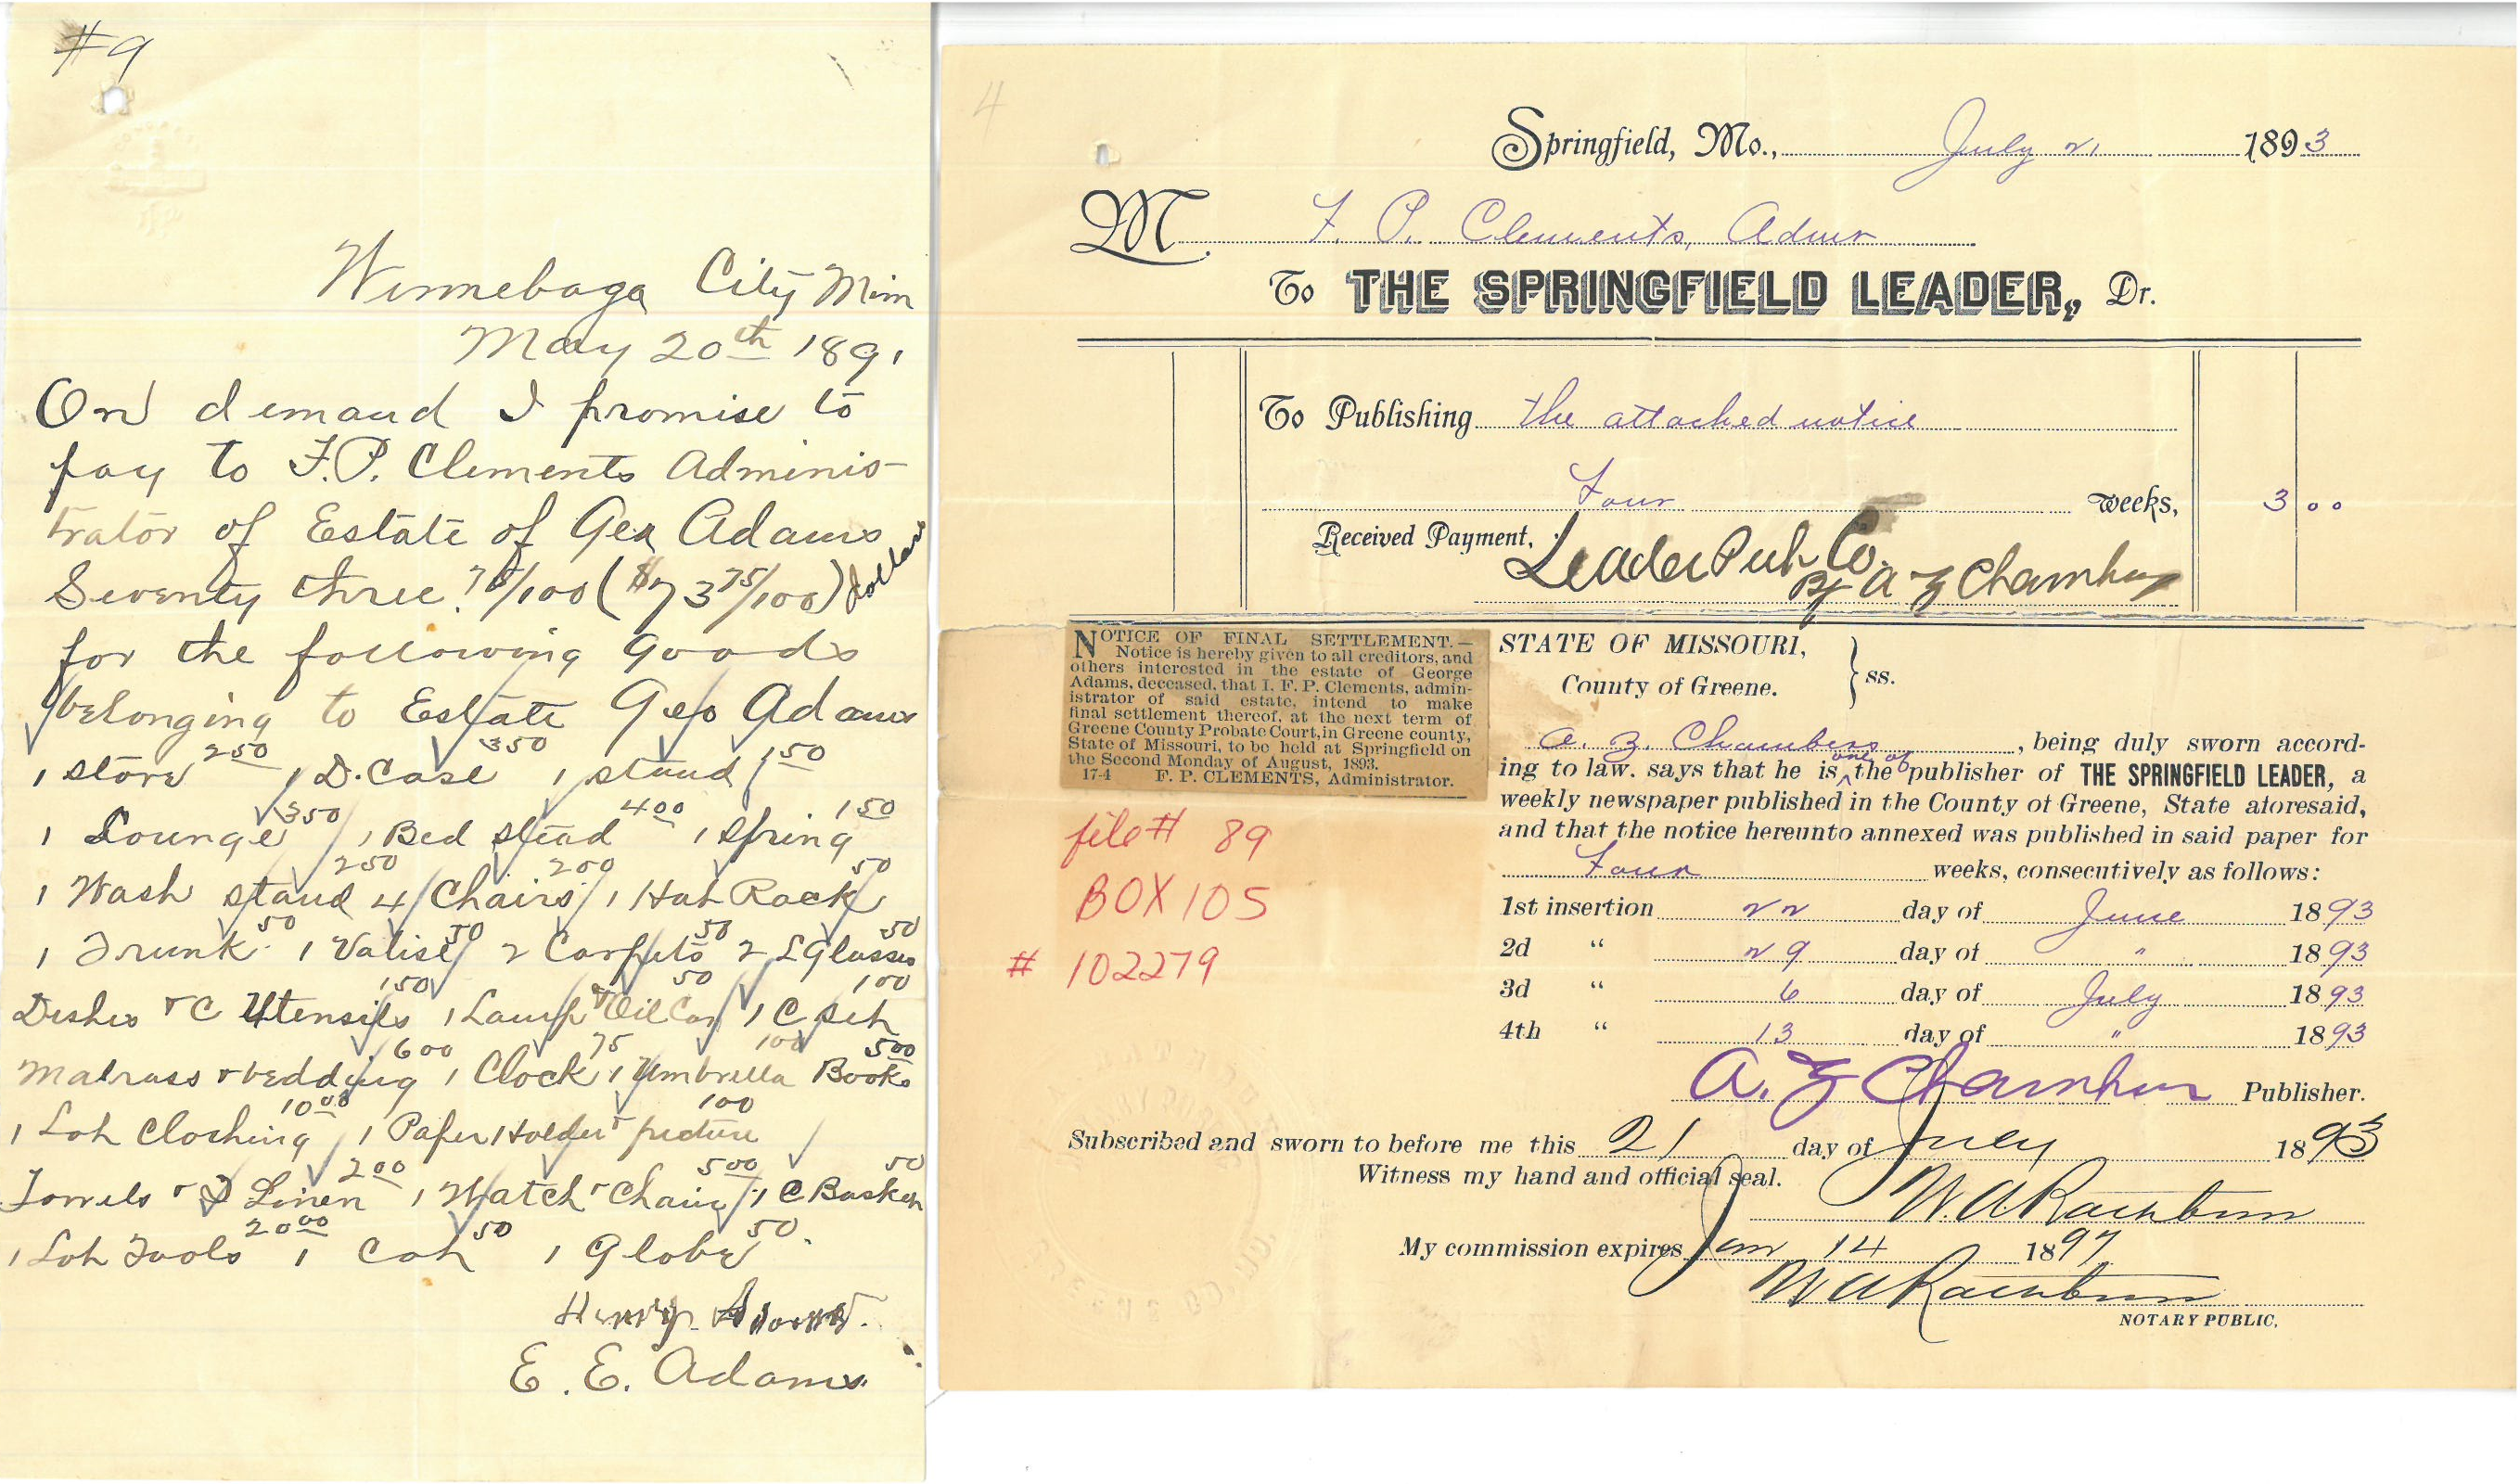 #9
Winnebago City Minn
May 20th 1891
On demand I promise to
pay to F.P. Clements Adminis-
trator of Estate of Geo Adams
Seventy three 75/100 ($73 75/100) dollars
for the following goods
belonging to Estate Geo Adams
1 Stove 250 1 D. Case 350 1 Stand 150
1 Lounge 350 1 Bed stead 400 1 Spring 150
1 Wash stand 250 4 Chairs 200 1 Hat Rack 50
1 Trunk 50 1 Valise 50 2 Carpets 50 2 L Glasses 50
Dishes & C Utensils 150 1 Lamp & Oil Can 50 1 C Set 100
Matrass & bedding 600 1 Clock 75 1 Umbrella 100 Books 500
1 Lot Clothing 1000 1 Paper Holder & picture 100
Towels & Linen 200 1 Watch & Chain 500 1 C Basket 50
1 Lot Tools 2000 1 Cot 50 1 Globe 50
Henry
E. E. Adams
4
Springfield, Mo., July 21 1893
M. F. P. Clements, Admr
To THE SPRINGFIELD LEADER, Dr.
To Publishing the attached notice
Four weeks, 3 00
Received Payment, Leader Pub Co.
By A Z Chambers
NOTICE OF FINAL SETTLEMENT.—
Notice is hereby given to all creditors, and
others interested in the estate of George
Adams, deceased, that I, F. P. Clements, admin-
istrator of said estate, intend to make
final settlement thereof, at the next term of
Greene County Probate Court, in Greene county,
State of Missouri, to be held at Springfield on
the Second Monday of August, 1893.
17-4 F. P. CLEMENTS, Administrator.
file # 89
BOX 105
# 102279
STATE OF MISSOURI,
County of Greene. } ss.
A. Z. Chambers, being duly sworn accord-
ing to law. says that he is one of the publisher of THE SPRINGFIELD LEADER, a
weekly newspaper published in the County of Greene, State aforesaid,
and that the notice hereunto annexed was published in said paper for
Four weeks, consecutively as follows:
1st insertion 22 day of June 1893
2d " 29 day of " 1893
3d " 6 day of July 1893
4th " 13 day of " 1893
A. Z Chambers Publisher.
Subscribed and sworn to before me this 21 day of July 1893
Witness my hand and official seal.
W. A. Rathbun
My commission expires Jan 14 1897
W A Rathbun
NOTARY PUBLIC.